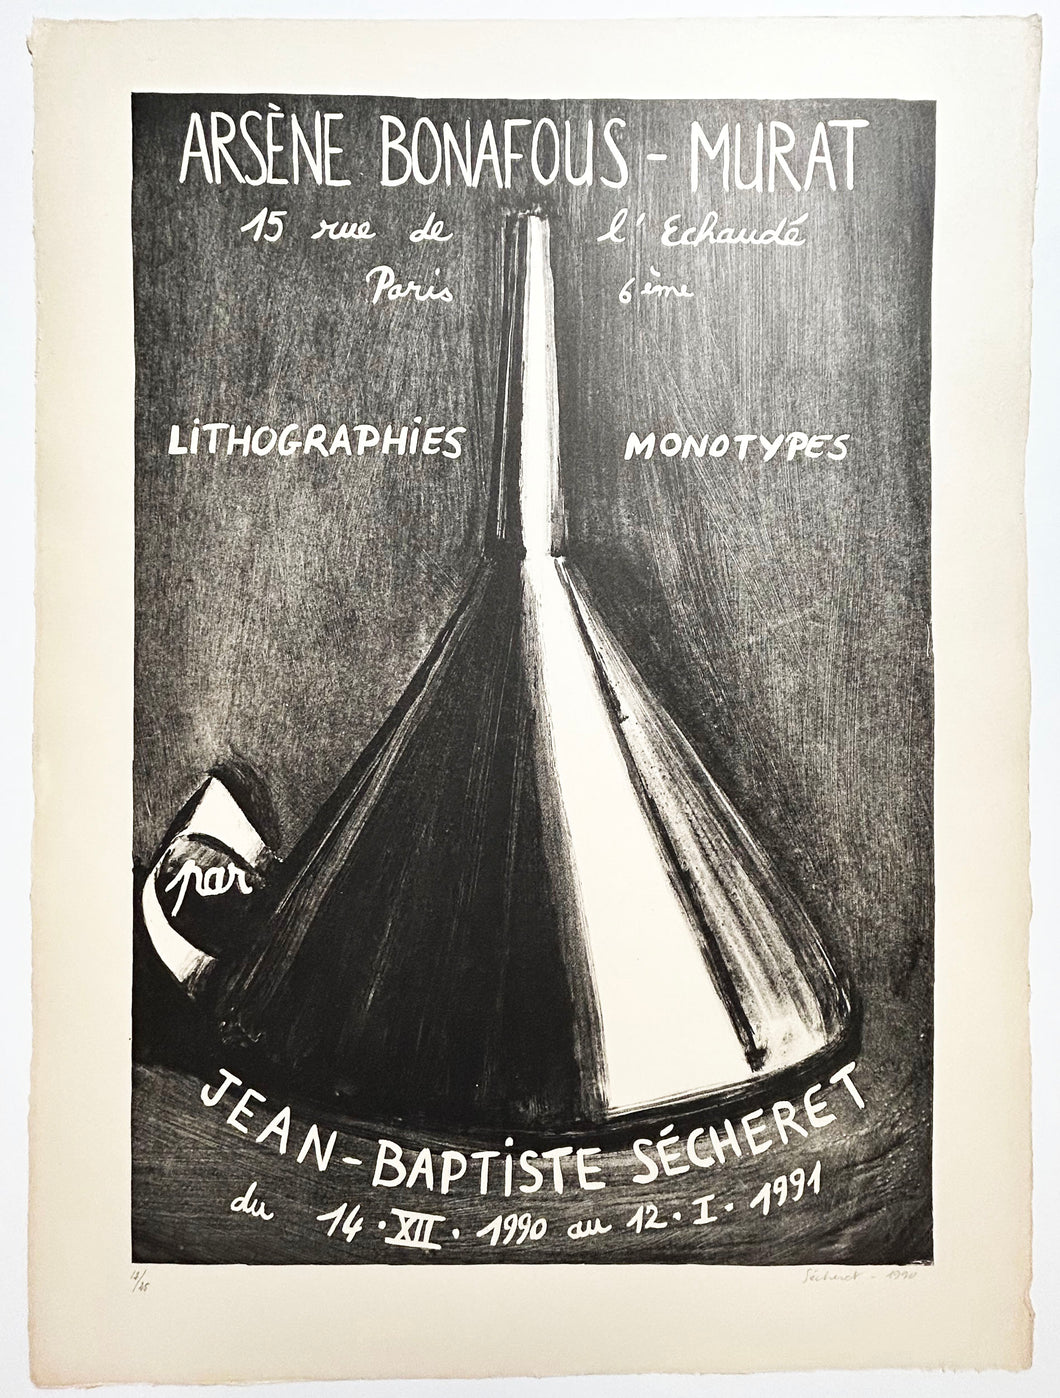 ARSÈNE BONAFOUS - MURAT
15 rue de l' Echaudé
Paris 6ème
LiTHOGRAPHiES MONOTYPES
par
JEAN-BAPTiSTE SÉCHERET
du 14 · XII · 1990 au 12 · I · 1991
Sécheret - 1990